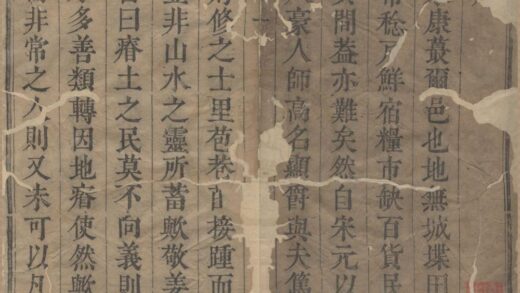 康蕞爾邑也地無城堞田
常稔戶鮮宿糧市缺百貨民
間葢亦難矣然自宋元以
豪人師高名顯爵與夫篤
修之士里苞巷接踵而
豈非山水之靈所蓄歟敬姜
曰瘠土之民莫不向義則
多善類轉因地瘠使然歟
非常之人則又未可以凡